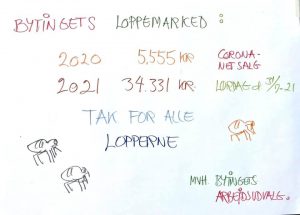 BYTINGETS LOPPEMARKED :
2020 5,555 KR. CORONA-
NETSALG
2021 34.331 KR. LØRDAG d. 31/7-21
TAK FOR ALLE
LOPPERNE
MVH. BYTINGETS
ARBEJDSUDVALG.